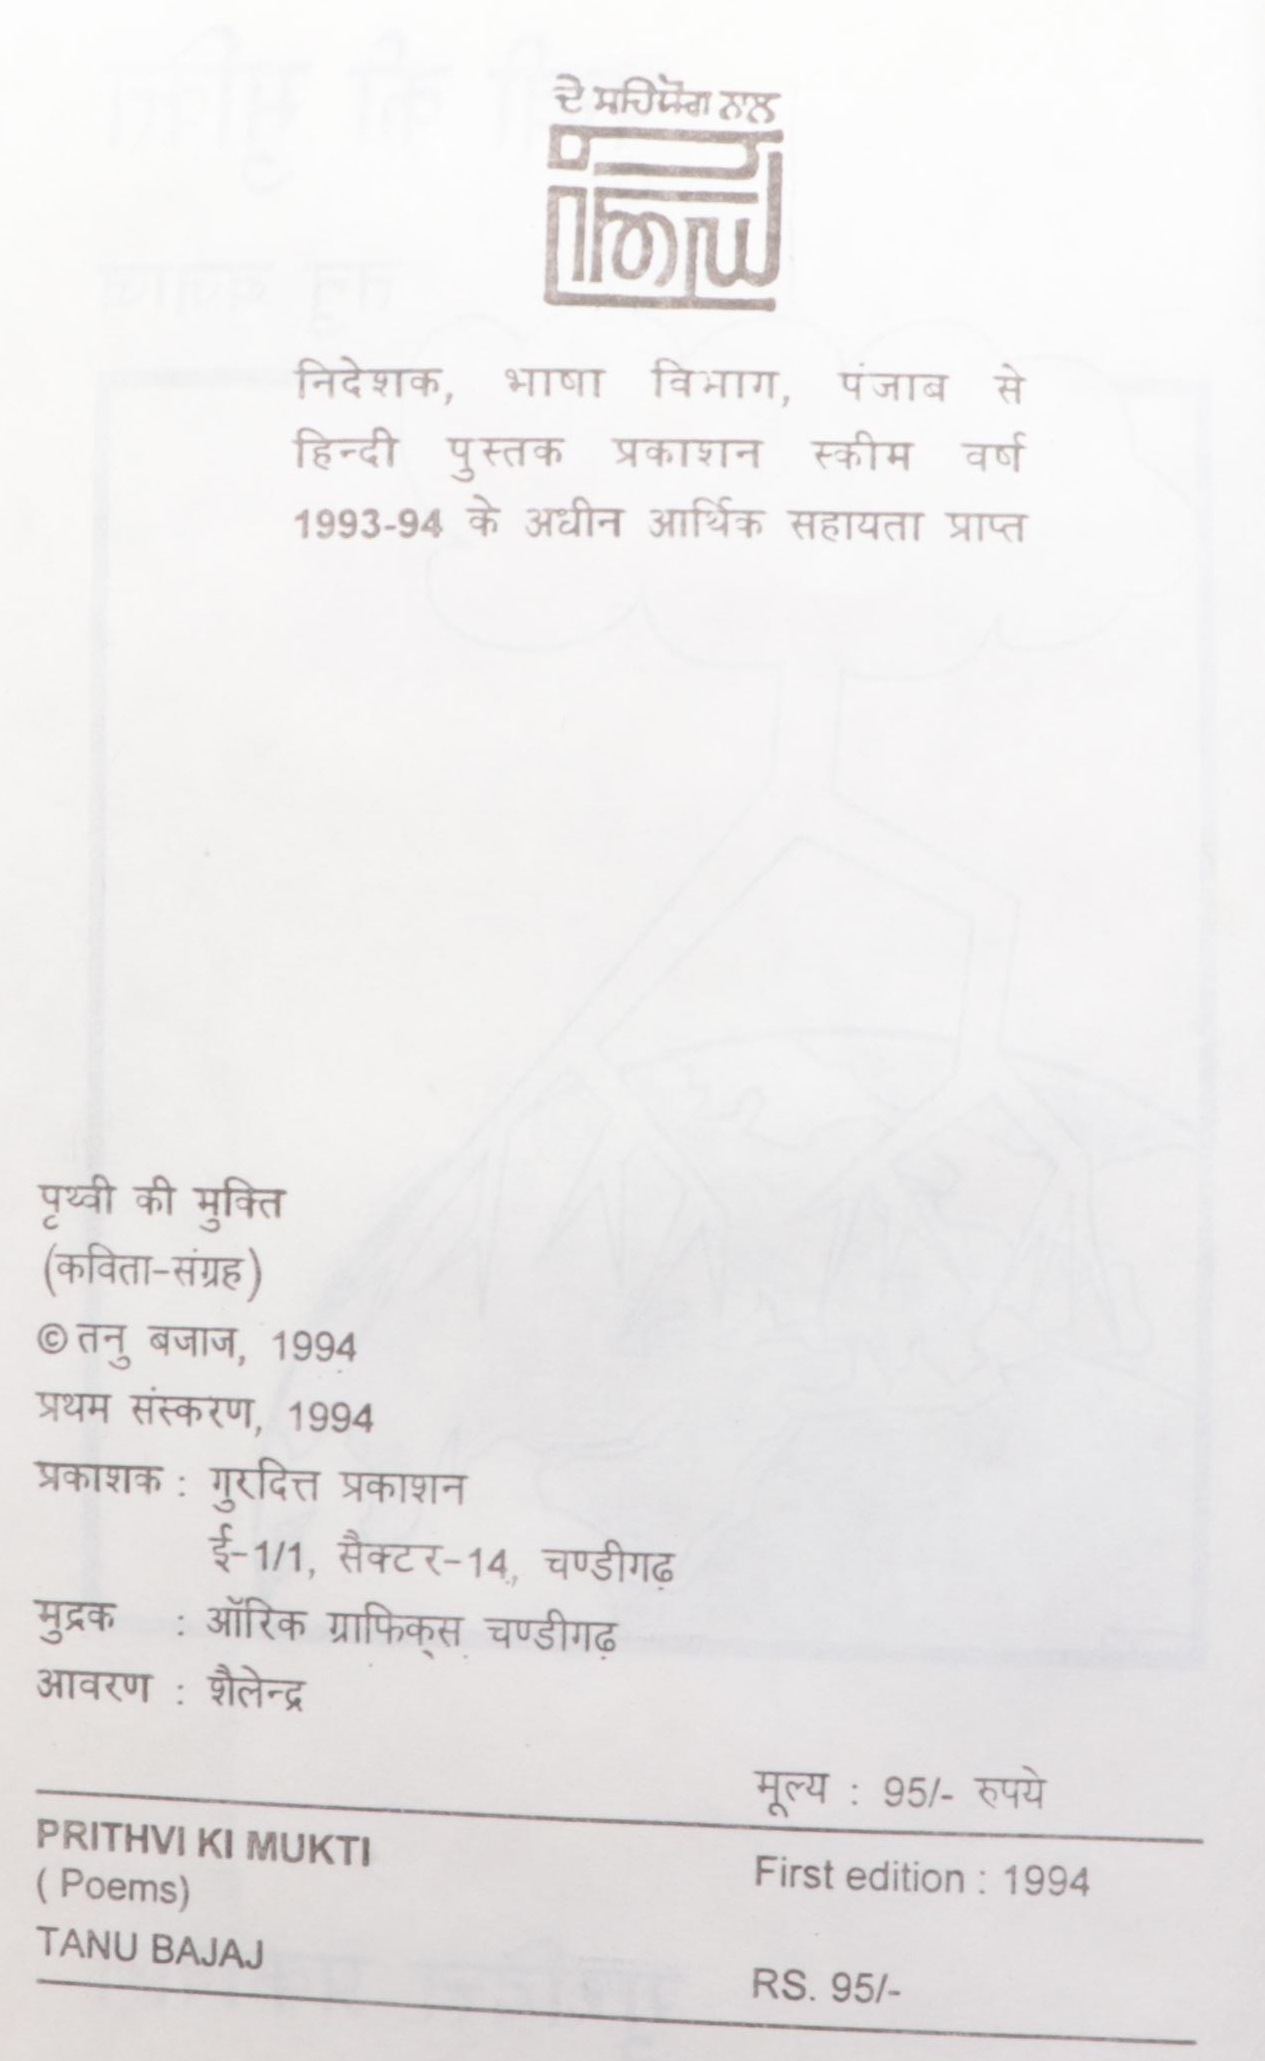 ਦੇ ਸਹਿਯੋਗ ਨਾਲ
निदेशक, भाषा विभाग, पंजाब से
हिन्दी पुस्तक प्रकाशन स्कीम वर्ष
1993-94 के अधीन आर्थिक सहायता प्राप्त
पृथ्वी की मुक्ति
(कविता-संग्रह)
© तनु बजाज, 1994
प्रथम संस्करण, 1994
प्रकाशक : गुरदित्त प्रकाशन
ई-1/1, सैक्टर-14, चण्डीगढ़
मुद्रक : ऑरिक ग्राफिक्स, चण्डीगढ़
आवरण : शैलेन्द्र
मूल्य : 95/- रुपये
PRITHVI KI MUKTI
( Poems)
TANU BAJAJ
First edition : 1994
RS. 95/-